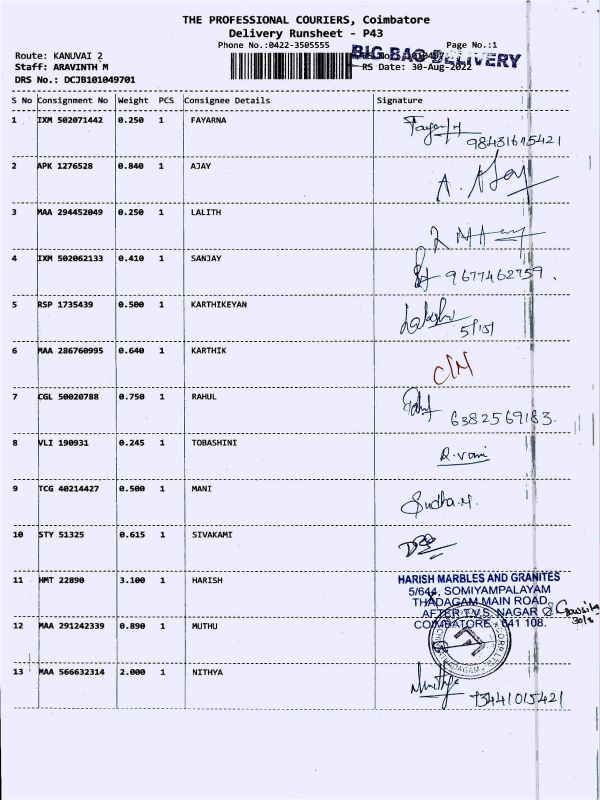 THE PROFESSIONAL COURIERS, Coimbatore
Delivery Runsheet - P43
Phone No.:0422-3505555
Page No.:1
BIG BAG DELIVERY
Route: KANUVAI 2
Staff: ARAVINTH M
RS Date: 30-Aug-2022
DRS No.: DCJB101049701
S No Consignment No Weight PCS Consignee Details Signature
1 IXM 502071442 0.250 1 FAYARNA
2 APK 1276528 0.840 1 AJAY A. Ajay
3 MAA 294452049 0.250 1 LALITH
4 IXM 502062133 0.410 1 SANJAY 9677462759.
5 RSP 1735439 0.500 1 KARTHIKEYAN
6 MAA 286760995 0.640 1 KARTHIK C/M
7 CGL 50020788 0.750 1 RAHUL 6382569183.
8 VLI 190931 0.245 1 TOBASHINI R.vani
9 TCG 40214427 0.500 1 MANI Sudha.M.
10 STY 51325 0.615 1 SIVAKAMI
11 HMT 22890 3.100 1 HARISH
HARISH MARBLES AND GRANITES
5/644, SOMIYAMPALAYAM
THADAGAM MAIN ROAD,
AFTER T.V.S. NAGAR
COIMBATORE - 641 108.
30/8
12 MAA 291242339 0.890 1 MUTHU
13 MAA 566632314 2.000 1 NITHYA